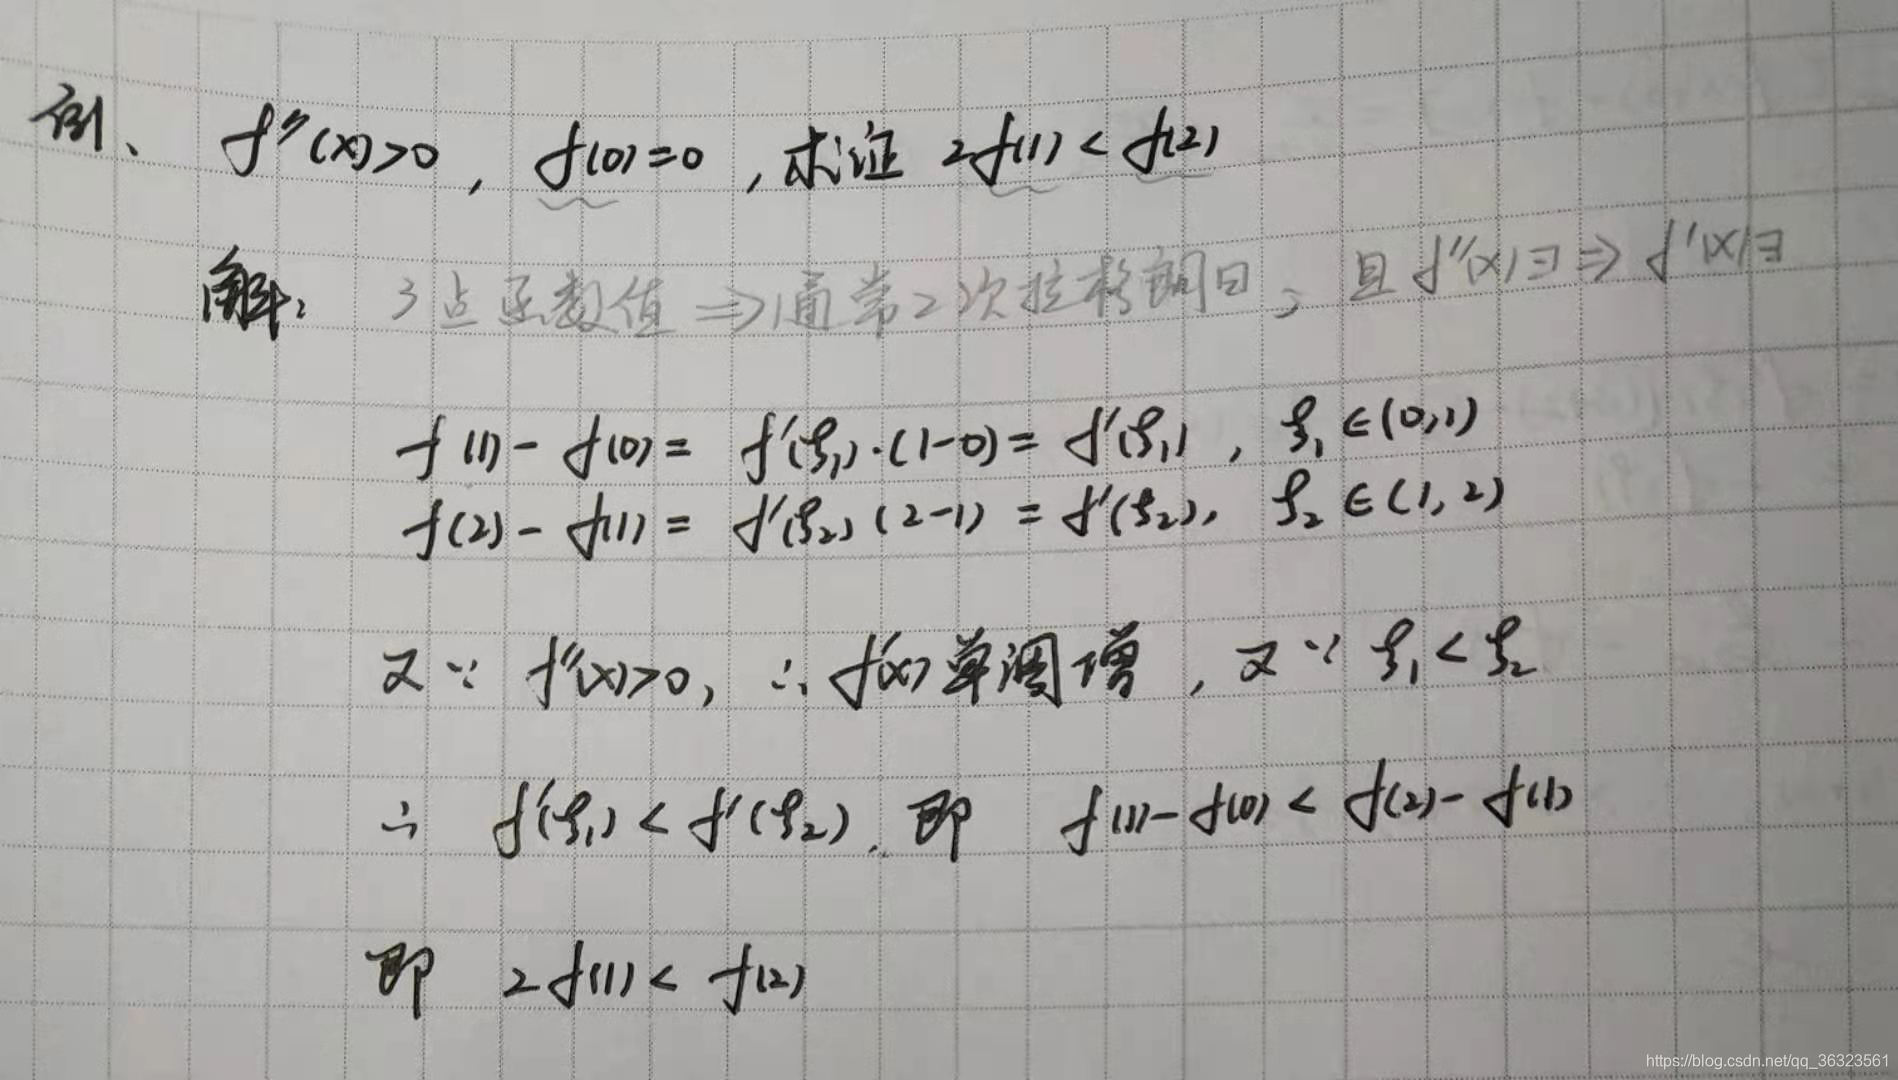 例、 f″(x)>0, f(0)=0, 求证 2f(1)<f(2)
解: 3点函数值 ⇒ 通常2次拉格朗日, 且 f″(x)∃ ⇒ f′(x)∃
f(1)-f(0)= f′(ξ₁)·(1-0)= f′(ξ₁), ξ₁∈(0,1)
f(2)-f(1)= f′(ξ₂)(2-1)= f′(ξ₂), ξ₂∈(1,2)
又∵ f″(x)>0, ∴ f′(x)单调增, 又∵ ξ₁<ξ₂
∴ f′(ξ₁)<f′(ξ₂), 即 f(1)-f(0)<f(2)-f(1)
即 2f(1)<f(2)
https://blog.csdn.net/qq_36323561